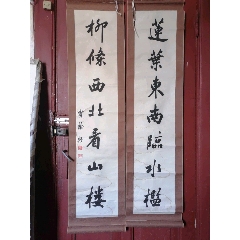 蓮葉東南臨水檻
柳條西北看山楼